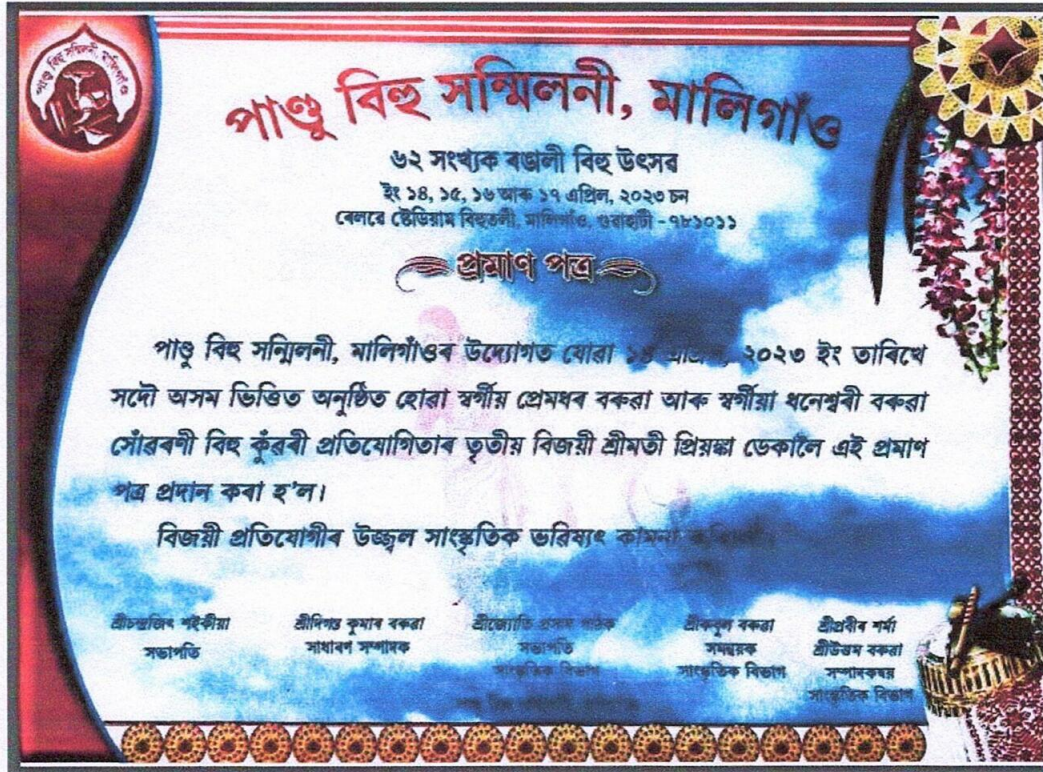 পাণ্ডু বিহু সন্মিলনী, মালিগাঁও
পাণ্ডু বিহু সন্মিলনী, মালিগাঁও
৬২ সংখ্যক ৰঙালী বিহু উৎসৱ
ইং ১৪, ১৫, ১৬ আৰু ১৭ এপ্ৰিল, ২০২৩ চন
ৰেলৱে ষ্টেডিয়াম বিহুতলী, মালিগাঁও, গুৱাহাটী - ৭৮১০১১
প্ৰমাণ পত্ৰ
পাণ্ডু বিহু সন্মিলনী, মালিগাঁওৰ উদ্যোগত যোৱা ১৪ এপ্ৰিল, ২০২৩ ইং তাৰিখে
সদৌ অসম ভিত্তিত অনুষ্ঠিত হোৱা স্বৰ্গীয় প্ৰেমধৰ বৰুৱা আৰু স্বৰ্গীয়া ধনেশ্বৰী বৰুৱা
সোঁৱৰণী বিহু কুঁৱৰী প্ৰতিযোগিতাৰ তৃতীয় বিজয়ী শ্ৰীমতী প্ৰিয়ঙ্কা ডেকালৈ এই প্ৰমাণ
পত্ৰ প্ৰদান কৰা হ'ল।
বিজয়ী প্ৰতিযোগীৰ উজ্জ্বল সাংস্কৃতিক ভৱিষ্যৎ কামনা
শ্ৰীচন্দ্ৰজিৎ শইকীয়া
সভাপতি
শ্ৰীদিগন্ত কুমাৰ বৰুৱা
সাধাৰণ সম্পাদক
শ্ৰীজ্যোতি প্ৰসাদ পাঠক
সভাপতি
সাংস্কৃতিক বিভাগ
শ্ৰীকবুল বৰুৱা
সমন্বয়ক
সাংস্কৃতিক বিভাগ
শ্ৰীপ্ৰবীৰ শৰ্মা
শ্ৰীউত্তম বৰুৱা
সম্পাদকদ্বয়
সাংস্কৃতিক বিভাগ